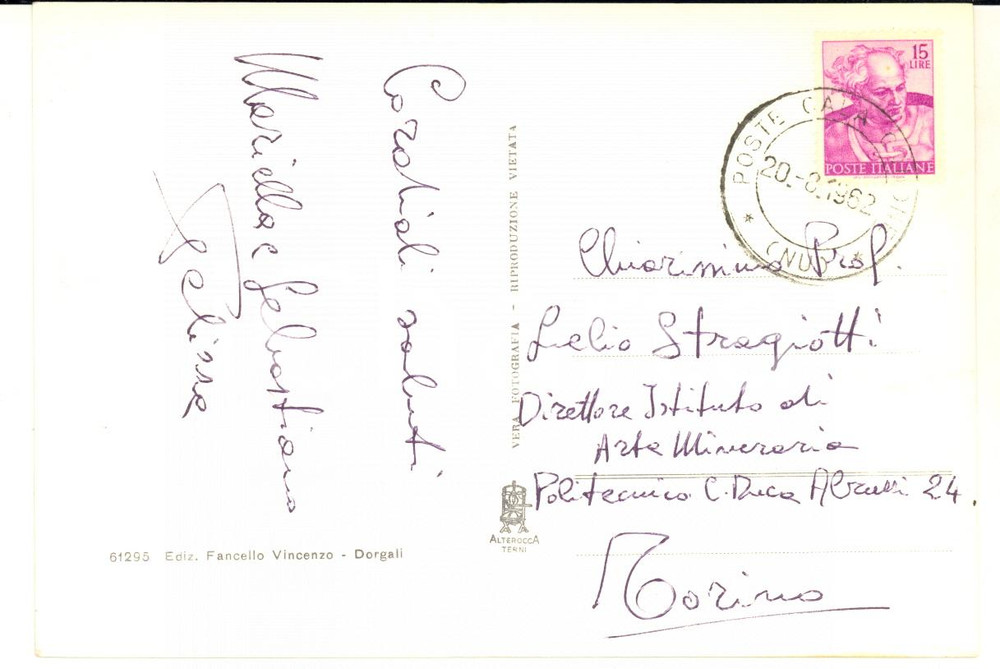 Cordiali saluti
Mariella e Sebastiano
Pelissa
61295 Ediz. Fancello Vincenzo - Dorgali
VERA FOTOGRAFIA - RIPRODUZIONE VIETATA
ALTEROCCA
TERNI
15
LIRE
POSTE ITALIANE
POSTE CALA
20.-8.1962
Chiarissimo Prof.
Lelio Stragiotti
Direttore Istituto di
Arte Mineraria
Politecnico C. Duca Abruzzi 24.
Torino